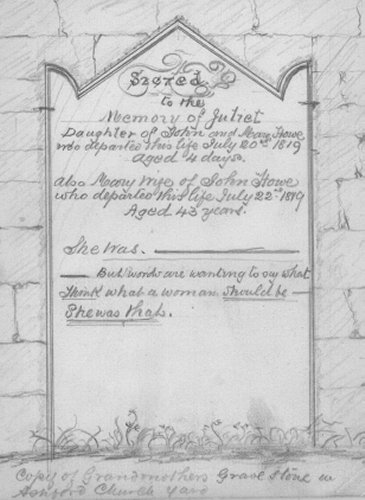 Sacred
to the
Memory of Juliet
Daughter of John and Mary Howe
who departed this life July 20th 1819
Aged 4 days.
Also Mary Wife of John Howe
who departed this life July 22nd 1819
Aged 43 years.
She was.
But words are wanting to say what
Think what a woman should be
She was that.
Copy of Grandmothers Grave Stone in
Ashford Church Yard